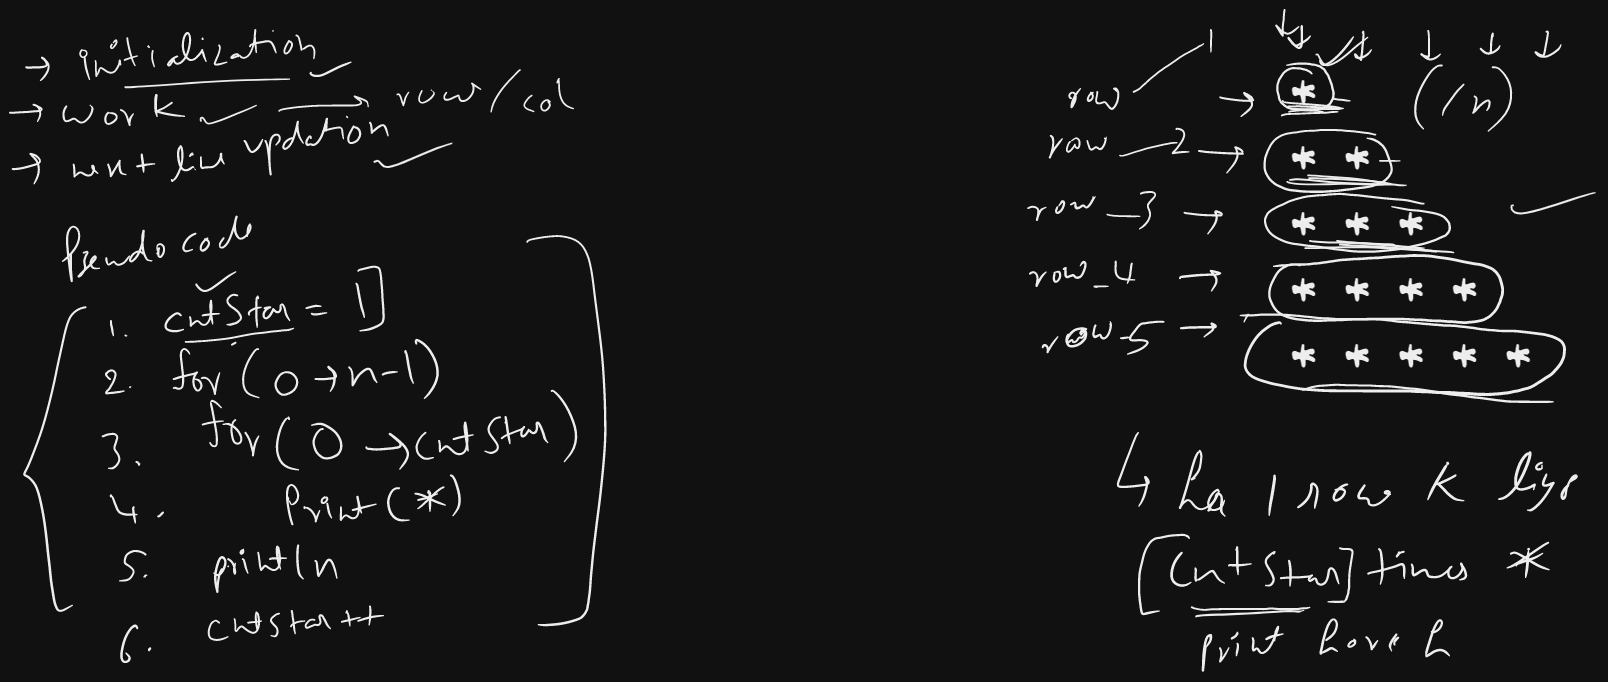 → initialization
→ work → row/col
→ next line updation
Pseudo code
1. cntStar = 1
2. for (0→n-1)
3. for (0→cntStar)
4. Print(*)
5. println
6. cntStar++
row 1 → * (/n)
row 2 → * *
row_3 → * * *
row_4 → * * * *
row_5 → * * * * *
ha 1 row k liye
[cntStar] times *
print hore h